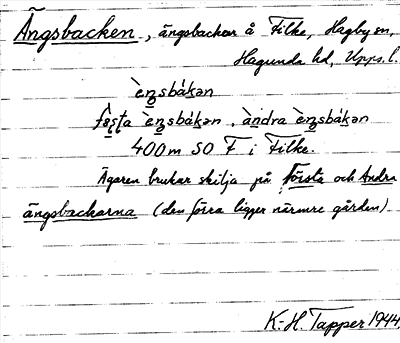 Ängsbacken, ängsbackar å Filke, Hagby sn,
Hagunda hd, Upps. l.
`èŋsbákən
fø̀ṣṭa `èŋsbákən, àndra èŋsbákən
400 m SO F i Filke.
Ägaren brukar skilja på Första och Andra
ängsbackarna (den förra ligger närmre gården)
K.-H. Tapper 1944.